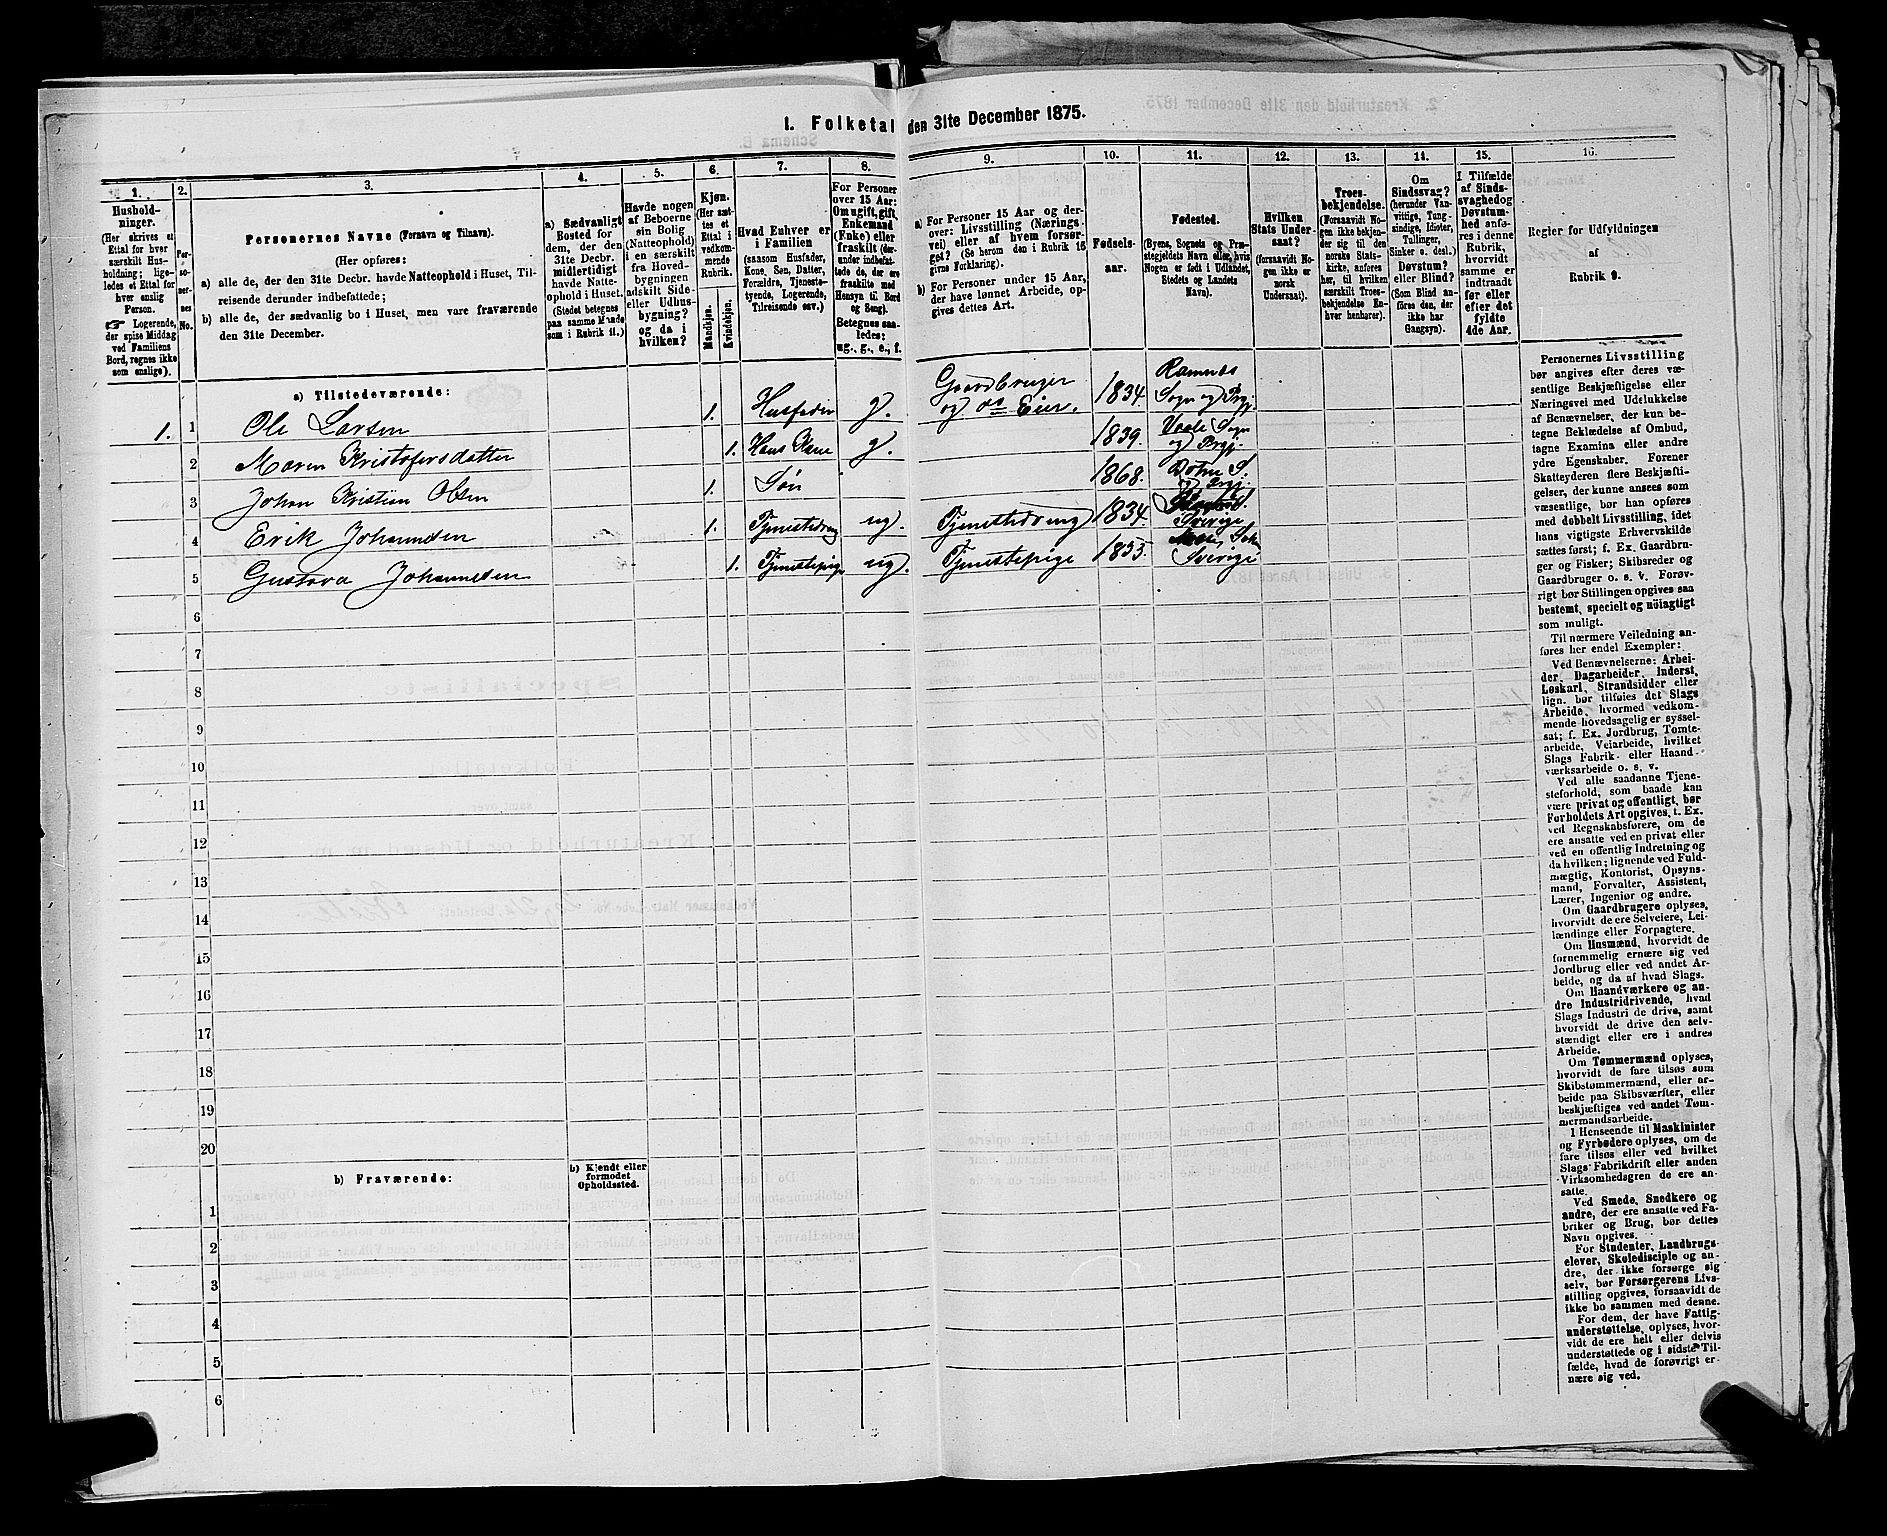 1. Folketal den 31te December 1875.
1.
Hushold-
ninger.
(Her skrives et
Ettal for hver
særskilt Hus-
holdning; lige-
ledes et Ettal for
hver enslig
Person.
☞ Logerende,
der spise Middag
ved Familiens
Bord, regnes ikke
som enslige).
2.
Per-
so-
ner-
nes
No.
3.
Personernes Navne (Fornavn og Tilnavn).
(Her opføres:
a) alle de, der den 31te Decbr. havde Natteophold i Huset, Til-
reisende derunder indbefattede;
b) alle de, der sædvanlig bo i Huset, men vare fraværende
den 31te December.
4.
a) Sædvanligt
Bosted for
dem, der den
31te Decbr.
midlertidigt
havde Natte-
ophold i Huset.
(Stedet betegnes
paa samme Maade
som i Rubrik 11.)
5.
Havde nogen
af Beboerne
sin Bolig
(Natteophold)
i en særskilt
fra Hoved-
bygningen
adskilt Side-
eller Udhus-
bygning?
og da i
hvilken?
6.
Kjøn.
(Her sæt-
tes et
Ettal i
vedkom-
mende
Rubrik.
Mandkjøn.
Kvindekjøn.
7.
Hvad Enhver er
i Familien
(saasom Husfader,
Kone, Søn, Datter,
Forældre, Tjeneste-
tyende, Logerende,
Tilreisende osv.)
8.
For Personer
over 15 Aar:
Om ugift, gift,
Enkemand
(Enke) eller
fraskilt (der-
under indbefat-
tede de, der ere
fraskilte med
Hensyn til Bord
og Seng).
Betegnes saa-
ledes:
ug., g., e., f.
9.
a) For Personer 15 Aar og der-
over: Livsstilling (Nærings-
vei) eller af hvem forsør-
get. (Se herom den i Rubrik 16
givne Forklaring).
b) For Personer under 15 Aar,
der have lønnet Arbeide, op-
gives dettes Art.
10.
Fødsels-
aar.
11.
Fødested.
(Byens, Sognets og Præ-
stegjeldets Navn eller, hvis
Nogen er født i Udlandet,
Stedets og Landets
Navn).
12.
Hvilken
Stats Under-
saat?
(forsaavidt No-
gen ikke er
norsk
Undersaat).
13.
Troes-
bekjendelse.
(Forsaavidt No-
gen ikke bekjen-
der sig til den
norske Stats-
kirke, anføres
her, til hvilken
særskilt Troes-
bekjendelse En-
hver henhører).
14.
Om
Sindssvag?
(herunder Van-
vittige, Tung-
sindige, Idioter,
Tullinger,
Sinker o. desl.).
Døvstum?
eller Blind?
(Som Blind an-
føres den, der
ikke har
Gangsyn).
15.
I Tilfælde
af Sinds-
svaghed og
Døvstum-
hed anfø-
res i denne
Rubrik,
hvorvidt
samme er
indtraadt
før eller
efter det
fyldte
4de Aar.
16.
Regler for Udfyldningen
af
Rubrik 9.
a) Tilstedeværende:
1. 1 Ole Larsen 1. Husfader g. Gaardbruger og do Eier. 1834. Ramnæs Sogn og Prgj.
2 Maren Kristofersdatter 1. Hans Kone g. 1839. Vaale Sogn og Prgj.
3 Johan Kristian Olsen 1. Søn 1868. S. Prgj.
4 Erik Johannesen 1. Tjenestedreng ug. Tjenestedreng 1834. Sverige
5 Gustava Johannesen 1. Tjenestepige ug. Tjenestepige 1853. Sverige
6
7
8
9
10
11
12
13
14
15
16
17
18
19
20
b) Fraværende:
b) Kjendt eller
formodet
Opholdssted.
1
2
3
4
5
6
Personernes Livsstilling
bør angives efter deres væ-
sentlige Beskjæftigelse eller
Næringsvei med Udelukkelse
af Benævnelser, der kun be-
tegne Beklædelse af Ombud,
tagne Examina eller andre
ydre Egenskaber. Forener
Skatteyderen flere Beskjæfti-
gelser, der kunne ansees som
væsentlige, bør han opføres
med dobbelt Livsstilling, idet
hans vigtigste Erhvervskilde
sættes først; f. Ex. Gaardbru-
ger og Fisker; Skibsreder og
Gaardbruger o. s. v. Forøv-
rigt bør Stillingen opgives saa
bestemt, specielt og nöiagtigt
som muligt.
Til nærmere Veiledning an-
føres her endel Exempler:
Ved Benævnelserne: Arbei-
der, Dagarbeider, Inderst,
Løskarl, Strandsidder eller
lign. bør tilføies det Slags
Arbeide, hvormed vedkom-
mende hovedsagelig er syssel-
sat; f. Ex. Jordbrug, Tomte-
arbeide, Veiarbeide, hvilket
Slags Fabrik- eller Haand-
værksarbeide o. s. v.
Ved alle saadanne Tjene-
steforhold, som baade kan
være privat og offentligt, bør
Forholdets Art opgives, t. Ex.
ved Regnskabsførere, om de
ere ansatte ved en privat eller
ved en offentlig Indretning og
da hvilken; lignende ved Fuld-
mægtig, Kontorist, Opsyns-
mand, Forvalter, Assistent,
Lærer, Ingeniør og andre.
Om Gaardbrugere oplyses,
hvorvidt de ere Selveiere, Lei-
lændinge eller Forpagtere.
Om Husmænd, hvorvidt de
fornemmelig ernære sig ved
Jordbrug eller ved andet Ar-
beide, og da af hvad Slags.
Om Haandværkere og an-
dre Industridrivende, hvad
Slags Industri de drive, samt
hvorvidt de drive den selv-
stændigt eller ere i andres
Arbeide.
Om Tømmermænd oplyses,
hvorvidt de fare tilsøs som
Skibstømmermænd, eller ar-
beide paa Skibsværfter, eller
beskjæftiges ved andet Tøm-
mermandsarbeide.
I Henseende til Maskinister
og Fyrbødere oplyses, om de
fare tilsøs eller ved hvilket
Slags Fabrikdrift eller anden
Virksomhedsgren de ere an-
satte.
Ved Smede, Snedkere og
andre, der ere ansatte ved Fa-
briker og Brug, bør dettes
Navn opgives.
For Studenter, Landbrugs-
elever, Skoledisciple og an-
dre, der ikke forsørge sig
selv, bør Forsørgerens Livs-
stilling opgives, forsaavidt de
ikke bo sammen med denne.
For dem, der have Fattig-
understøttelse, oplyses, hvor-
vidt de ere helt eller delvis
understøttede og i sidste Til-
fælde, hvad de forøvrigt er-
nære sig ved.